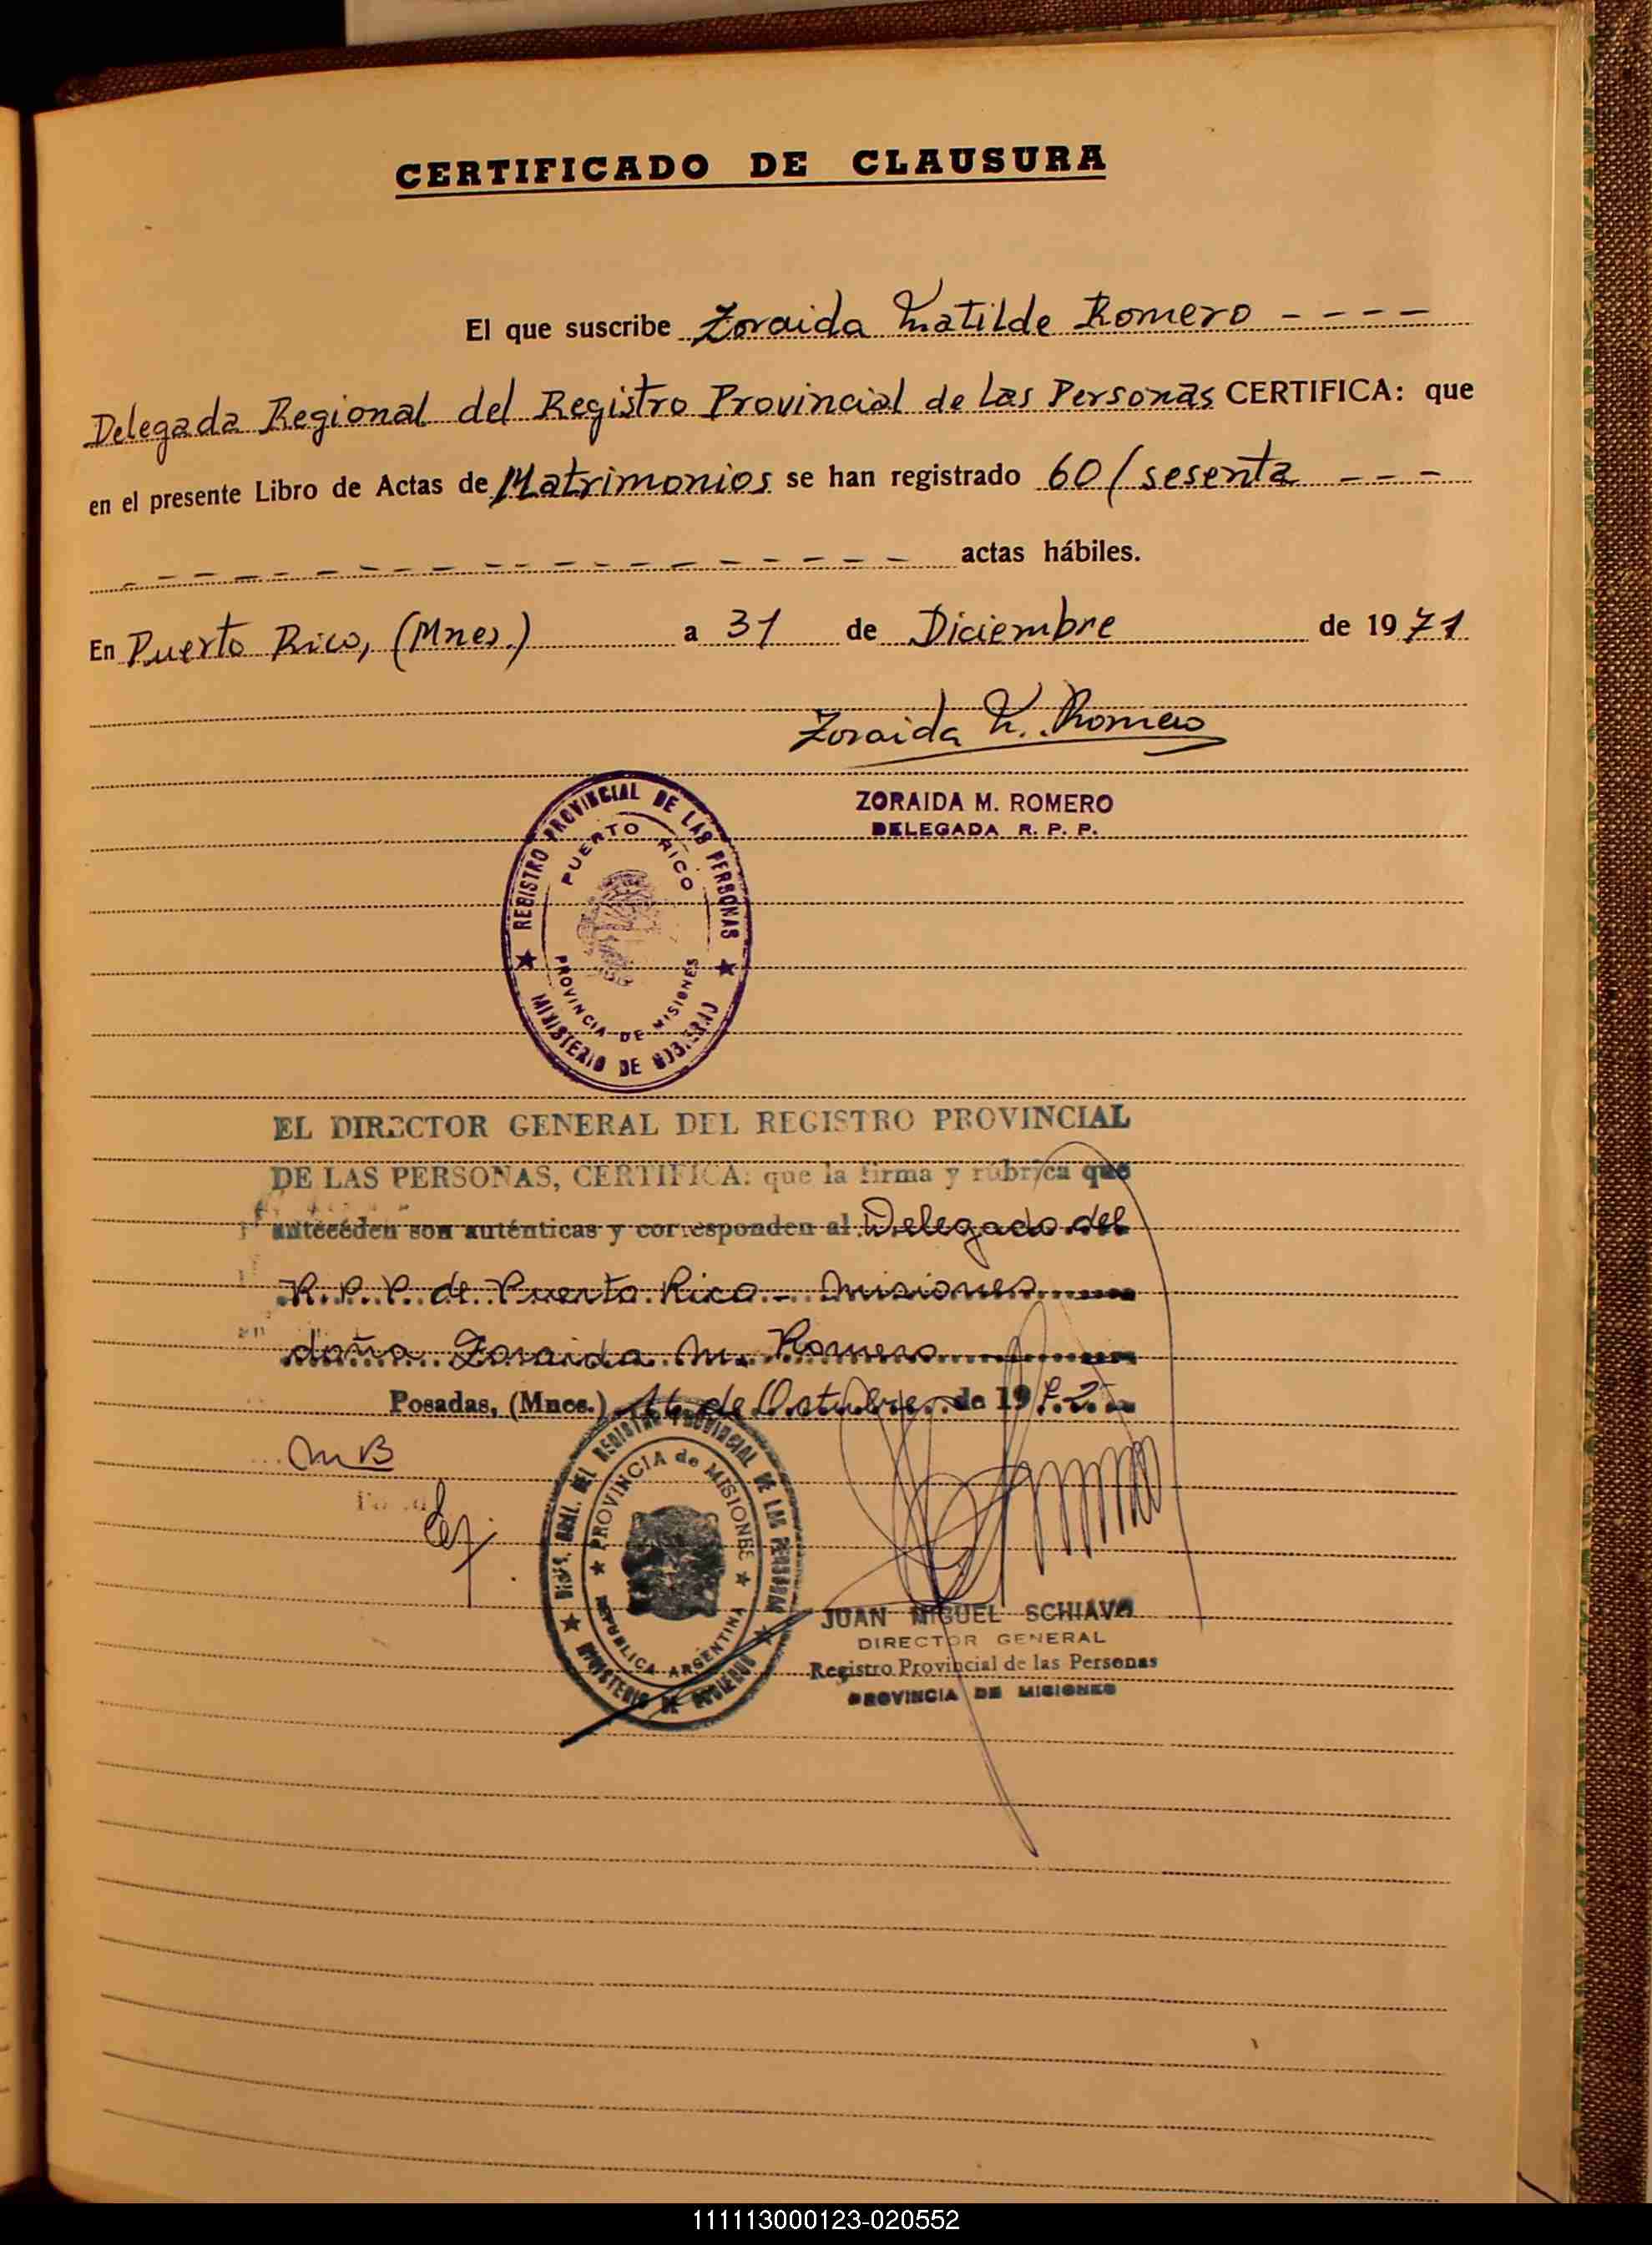 CERTIFICADO DE CLAUSURA
El que suscribe Zoraida Matilde Romero - - - -
Delegada Regional del Registro Provincial de Las Personas CERTIFICA: que
en el presente Libro de Actas de Matrimonios se han registrado 60/sesenta - - -
- - - - - - - - - - - - - - - - - - - - actas hábiles.
En Puerto Rico, (Mnes.) a 31 de Diciembre de 1971
Zoraida M. Romero
ZORAIDA M. ROMERO
DELEGADA R. P. P.
REGISTRO PROVINCIAL DE LAS PERSONAS
PUERTO RICO
PROVINCIA DE MISIONES
MINISTERIO DE GOBIERNO
EL DIRECTOR GENERAL DEL REGISTRO PROVINCIAL
DE LAS PERSONAS, CERTIFICA: que la firma y rúbrica que
antecéden son auténticas y corresponden al Delegado del
R. P. P. de Puerto Rico - Misiones
doña Zoraida M. Romero
Posadas, (Mnes.) 16 de Octubre de 1972
MB
DIREC. GRAL. DEL REGISTRO PROVINCIAL DE LAS PERSONAS
PROVINCIA de MISIONES
REPUBLICA ARGENTINA
MINISTERIO DE GOBIERNO
JUAN MIGUEL SCHIAVO
DIRECTOR GENERAL
Registro Provincial de las Personas
PROVINCIA DE MISIONES
111113000123-020552